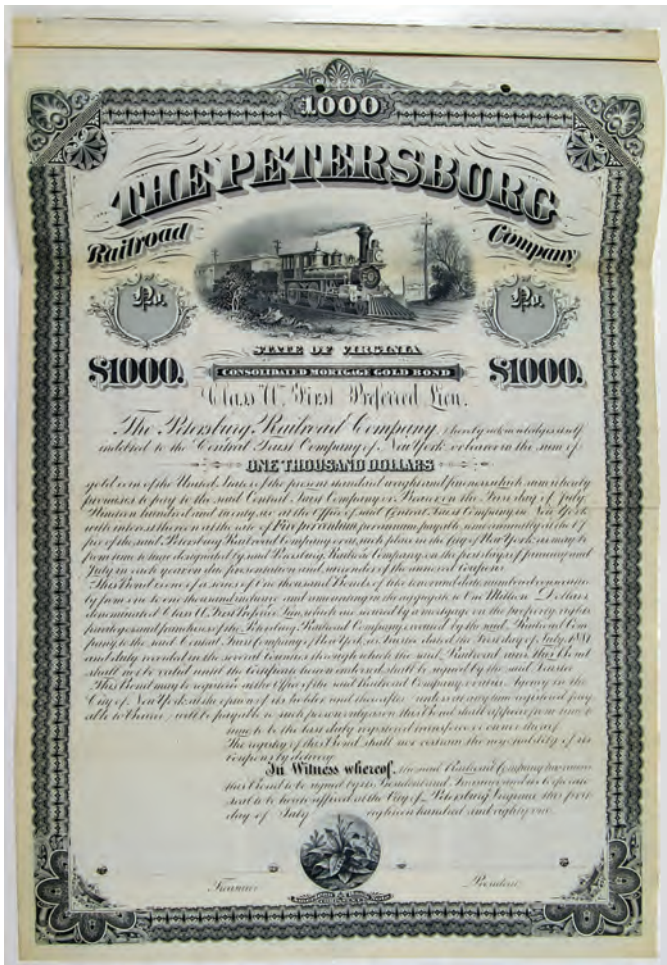 1000
THE PETERSBURG
Railroad Company
No. No.
STATE OF VIRGINIA
$1000. CONSOLIDATED MORTGAGE GOLD BOND $1000.
Class "A" First Preferred Lien.
The Petersburg Railroad Company, hereby acknowledges itself
indebted to the Central Trust Company of New York or bearer in the sum of
ONE THOUSAND DOLLARS
gold coin of the United States of the present standard weight and fineness which sum it hereby
promises to pay to the said Central Trust Company or Bearer on the First day of July
Nineteen hundred and twenty six at the Office of said Central Trust Company in New York
with interest thereon at the rate of Five per centum per annum payable semi annually at the Of-
fice of the said Petersburg Railroad Company or at such place in the City of New York as may be
from time to time designated by said Petersburg Railroad Company on the first days of January and
July in each year on due presentation and surrender of the annexed Coupons
This Bond is one of a series of One thousand Bonds of like tenor and date numbered consecutive-
ly from one to one thousand inclusive and amounting in the aggregate to One Million Dollars
denominated Class A. First Preferred Lien, which are secured by a mortgage on the property, rights
privileges and franchises of the Petersburg Railroad Company executed by the said Railroad Com-
pany to the said Central Trust Company of New York, as Trustee dated the First day of July 1881
and duly recorded in the several Counties through which the said Railroad runs this Bond
shall not be valid until the Certificate hereon endorsed shall be signed by the said Trustee
This Bond may be registered at the Office of the said Railroad Company or at its Agency in the
City of New York at the option of its holder and thereafter unless at any time registered pay-
able to Bearer, will be payable to such person only as on this Bond shall appear from time to
time to be the last duly registered transferee or owner thereof.
The registry of this Bond shall not restrain the negotiability of its
coupons by delivery
In Witness whereof, the said Railroad Company has caused
this Bond to be signed by its President and Treasurer and its Corporate
Seal to be hereto affixed at the City of Petersburg Virginia this first
day of July eighteen hundred and eighty one.
Treasurer President